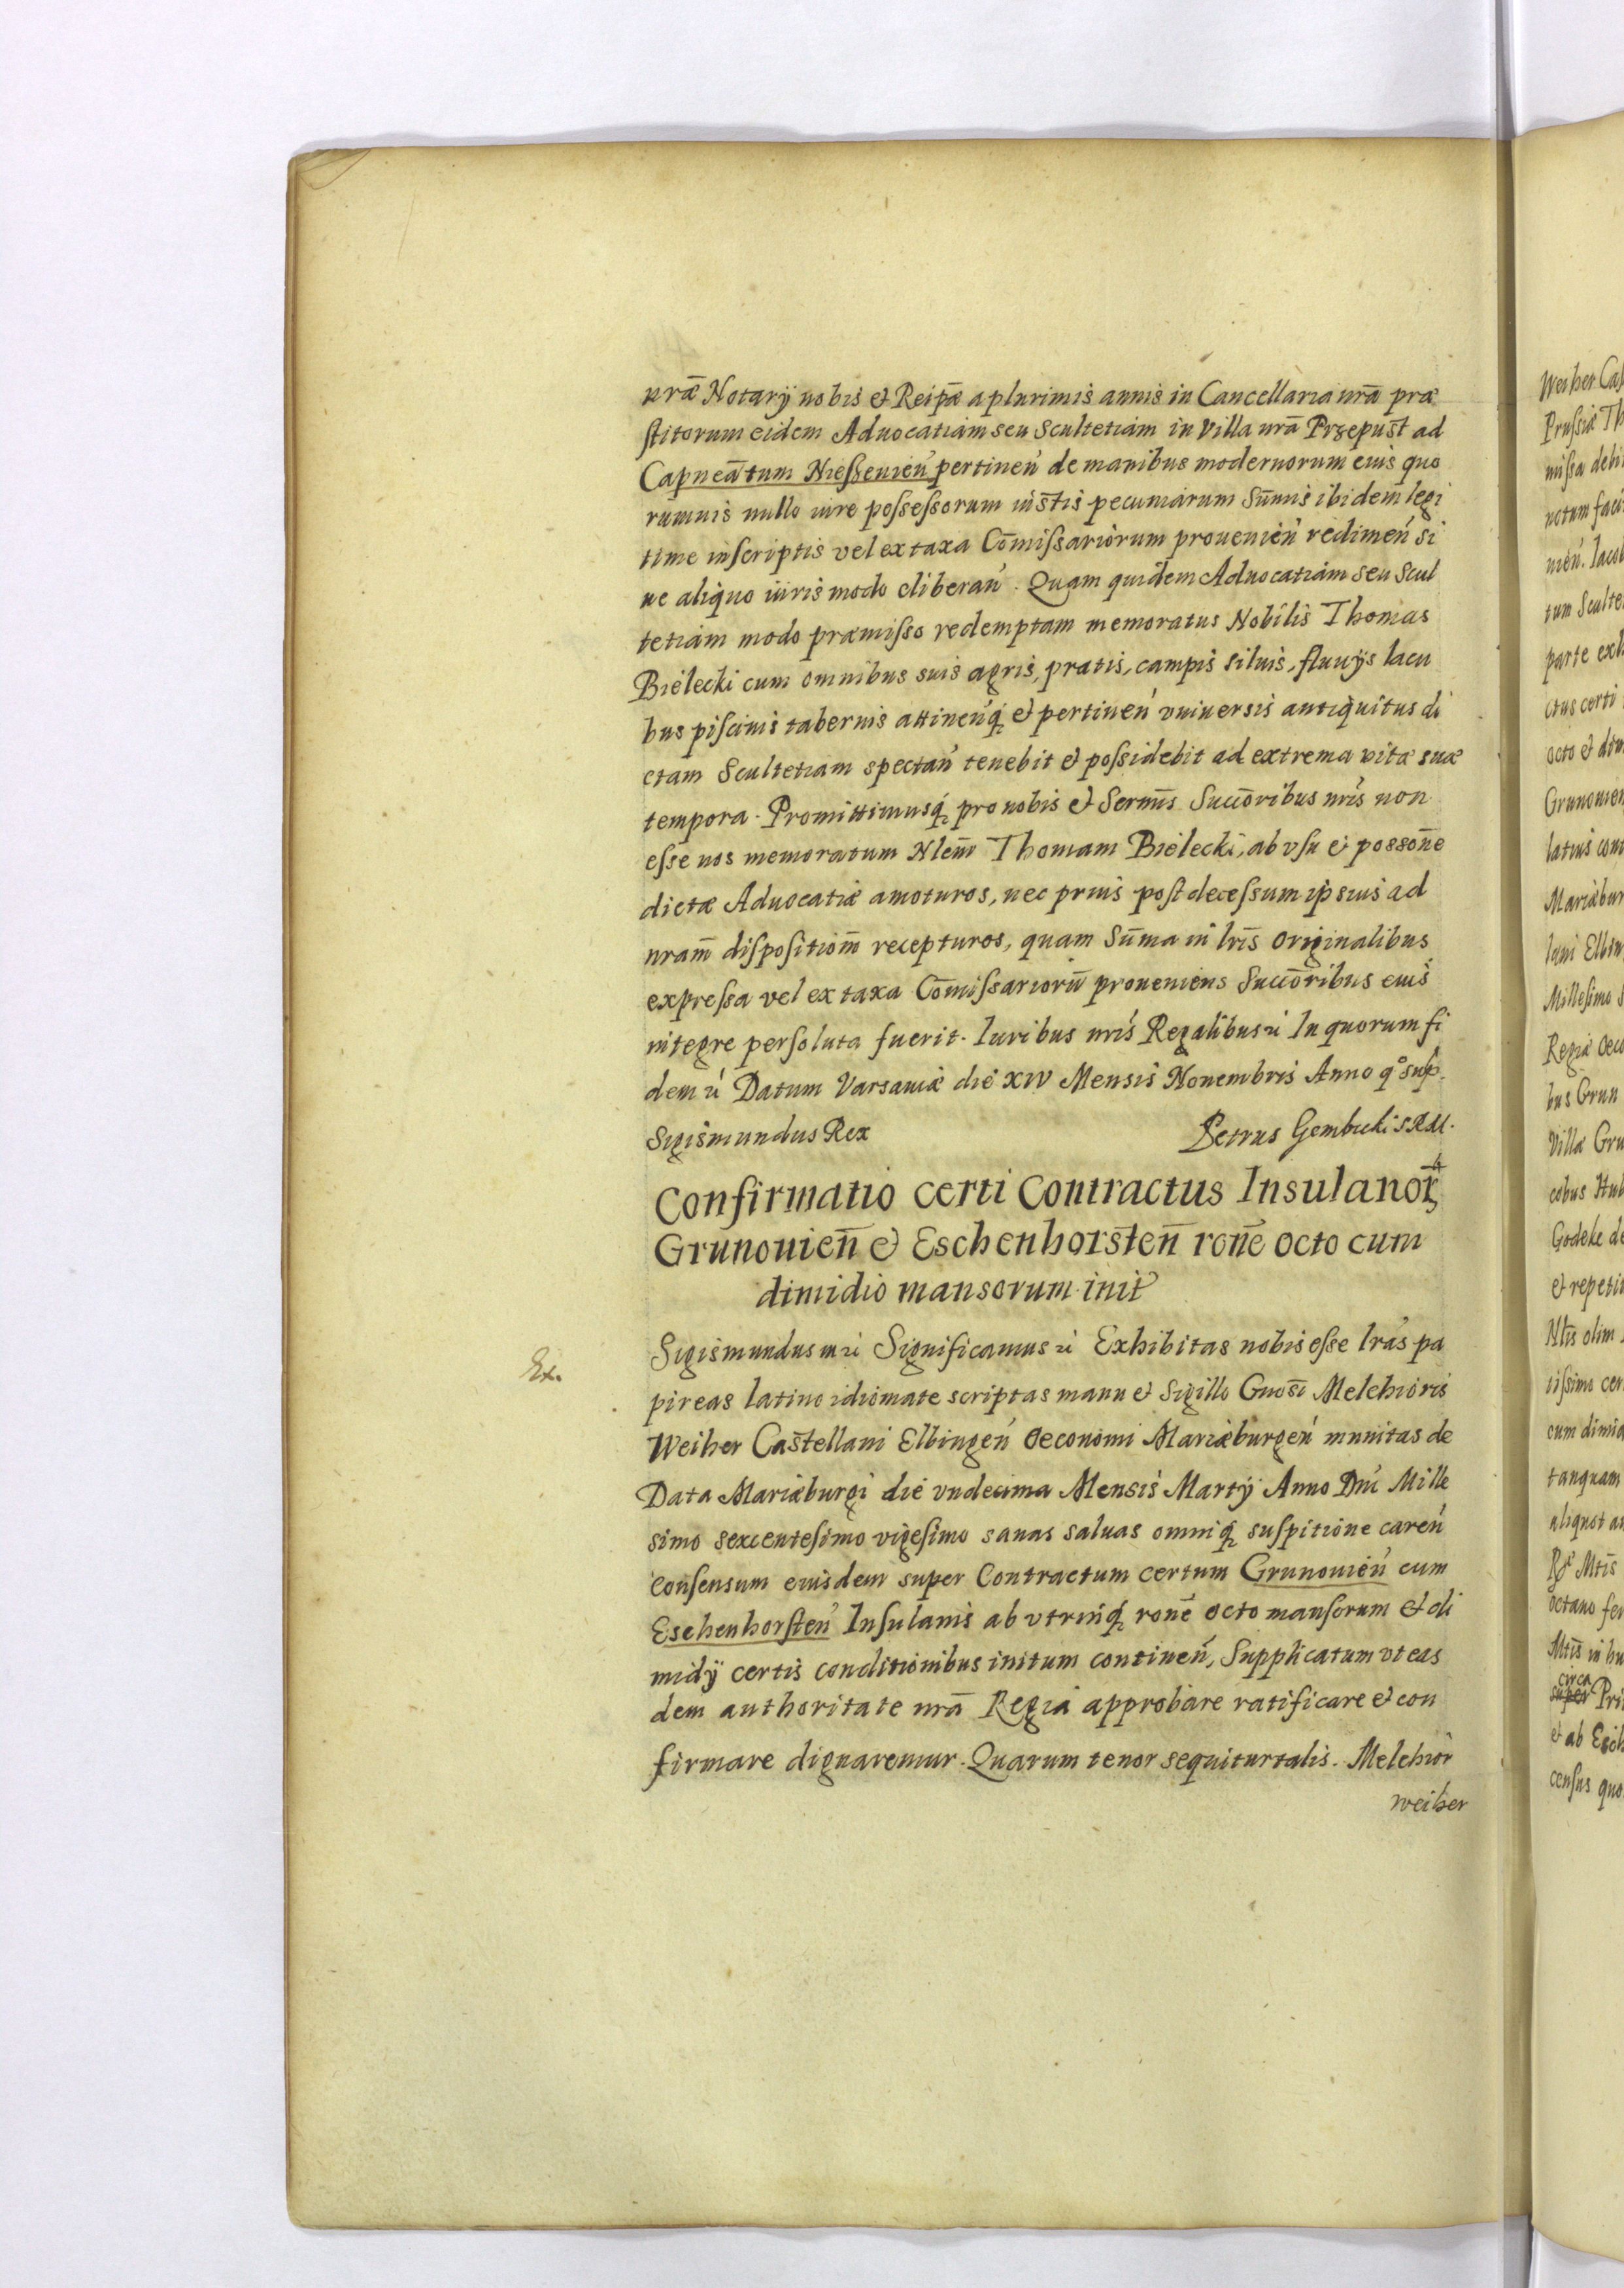 nræ Notarÿ nobis et Reipæ a plurimis annis in Cancellaria nrã præ
stitorum eidem Aduocatiam seu Scultetiam in Villa nrã Przepust ad
Capneãtum Nieszeuień pertineń de manibus modernorum eius quo
rumuis nullo iure possessorum iustis pecuniarum Sum̃is ibidem legi
time inscriptis vel ex taxa Com̃issariorum prouenień redimeń si
ue aliquo iuris modo eliberań. Quam quidem Aduocatiam seu Scul
tetiam modo præmisso redemptam memoratus Nobilis Thomas
Bielecki cum omnibus suis agris, pratis, campis siluis, fluuÿs lacu
bus piscinis tabernis attineńq́ et pertineń vniuersis antiquitus di
ctam Scultetiam spectań tenebit et possidebit ad extrema vitæ suæ
tempora. Promittimusq́ pro nobis et Sermis Succoribus nris non
esse nos memoratum Nlem Thomam Bielecki, ab vsu et possone
dictæ Aduocatiæ amoturos, nec prius post decessum ipsius ad
nram dispositiom recepturos, quam Sum̃a in lris originalibus
expressa vel ex taxa Com̃issariorũ proueniens Succoribus eius
integre persoluta fuerit. Iuribus nris Regalibus ẽ In quorum fi
dem ẽ Datum Varsauiæ die XIV Mensis Nouembris Anno qº sup.
Sigismundus Rex Petrus Gembicki SRM.
Confirmatio certi Contractus Insulanor
Grunouieñ et Eschenhorsteñ rone octo cum
dimidio mansorum init
Ex.
Sigismundus III ẽ Significamus ẽ Exhibitas nobis esse lras pa
pireas latino idiomate scriptas manu et Sigillo Gnosi Melchioris
Weiher Castellani Elbingeń Oeconomi Mariæburgeń munitas de
Data Mariæburgi die vndecima Mensis Martÿ Anno Dni Mille
simo sexcentesimo vigesimo sanas saluas omniq́ suspitione careń
consensum eiusdem super Contractum certum Grunouień cum
Eschenhorsteń Insulanis ab vtrinq́ rone octo mansorum et di
midÿ certis conditionibus initum contineń, Supplicatum vt eas
dem authoritate nrã Regia approbare ratificare et con
firmare dignaremur. Quarum tenor sequitur talis. Melchior
weiher